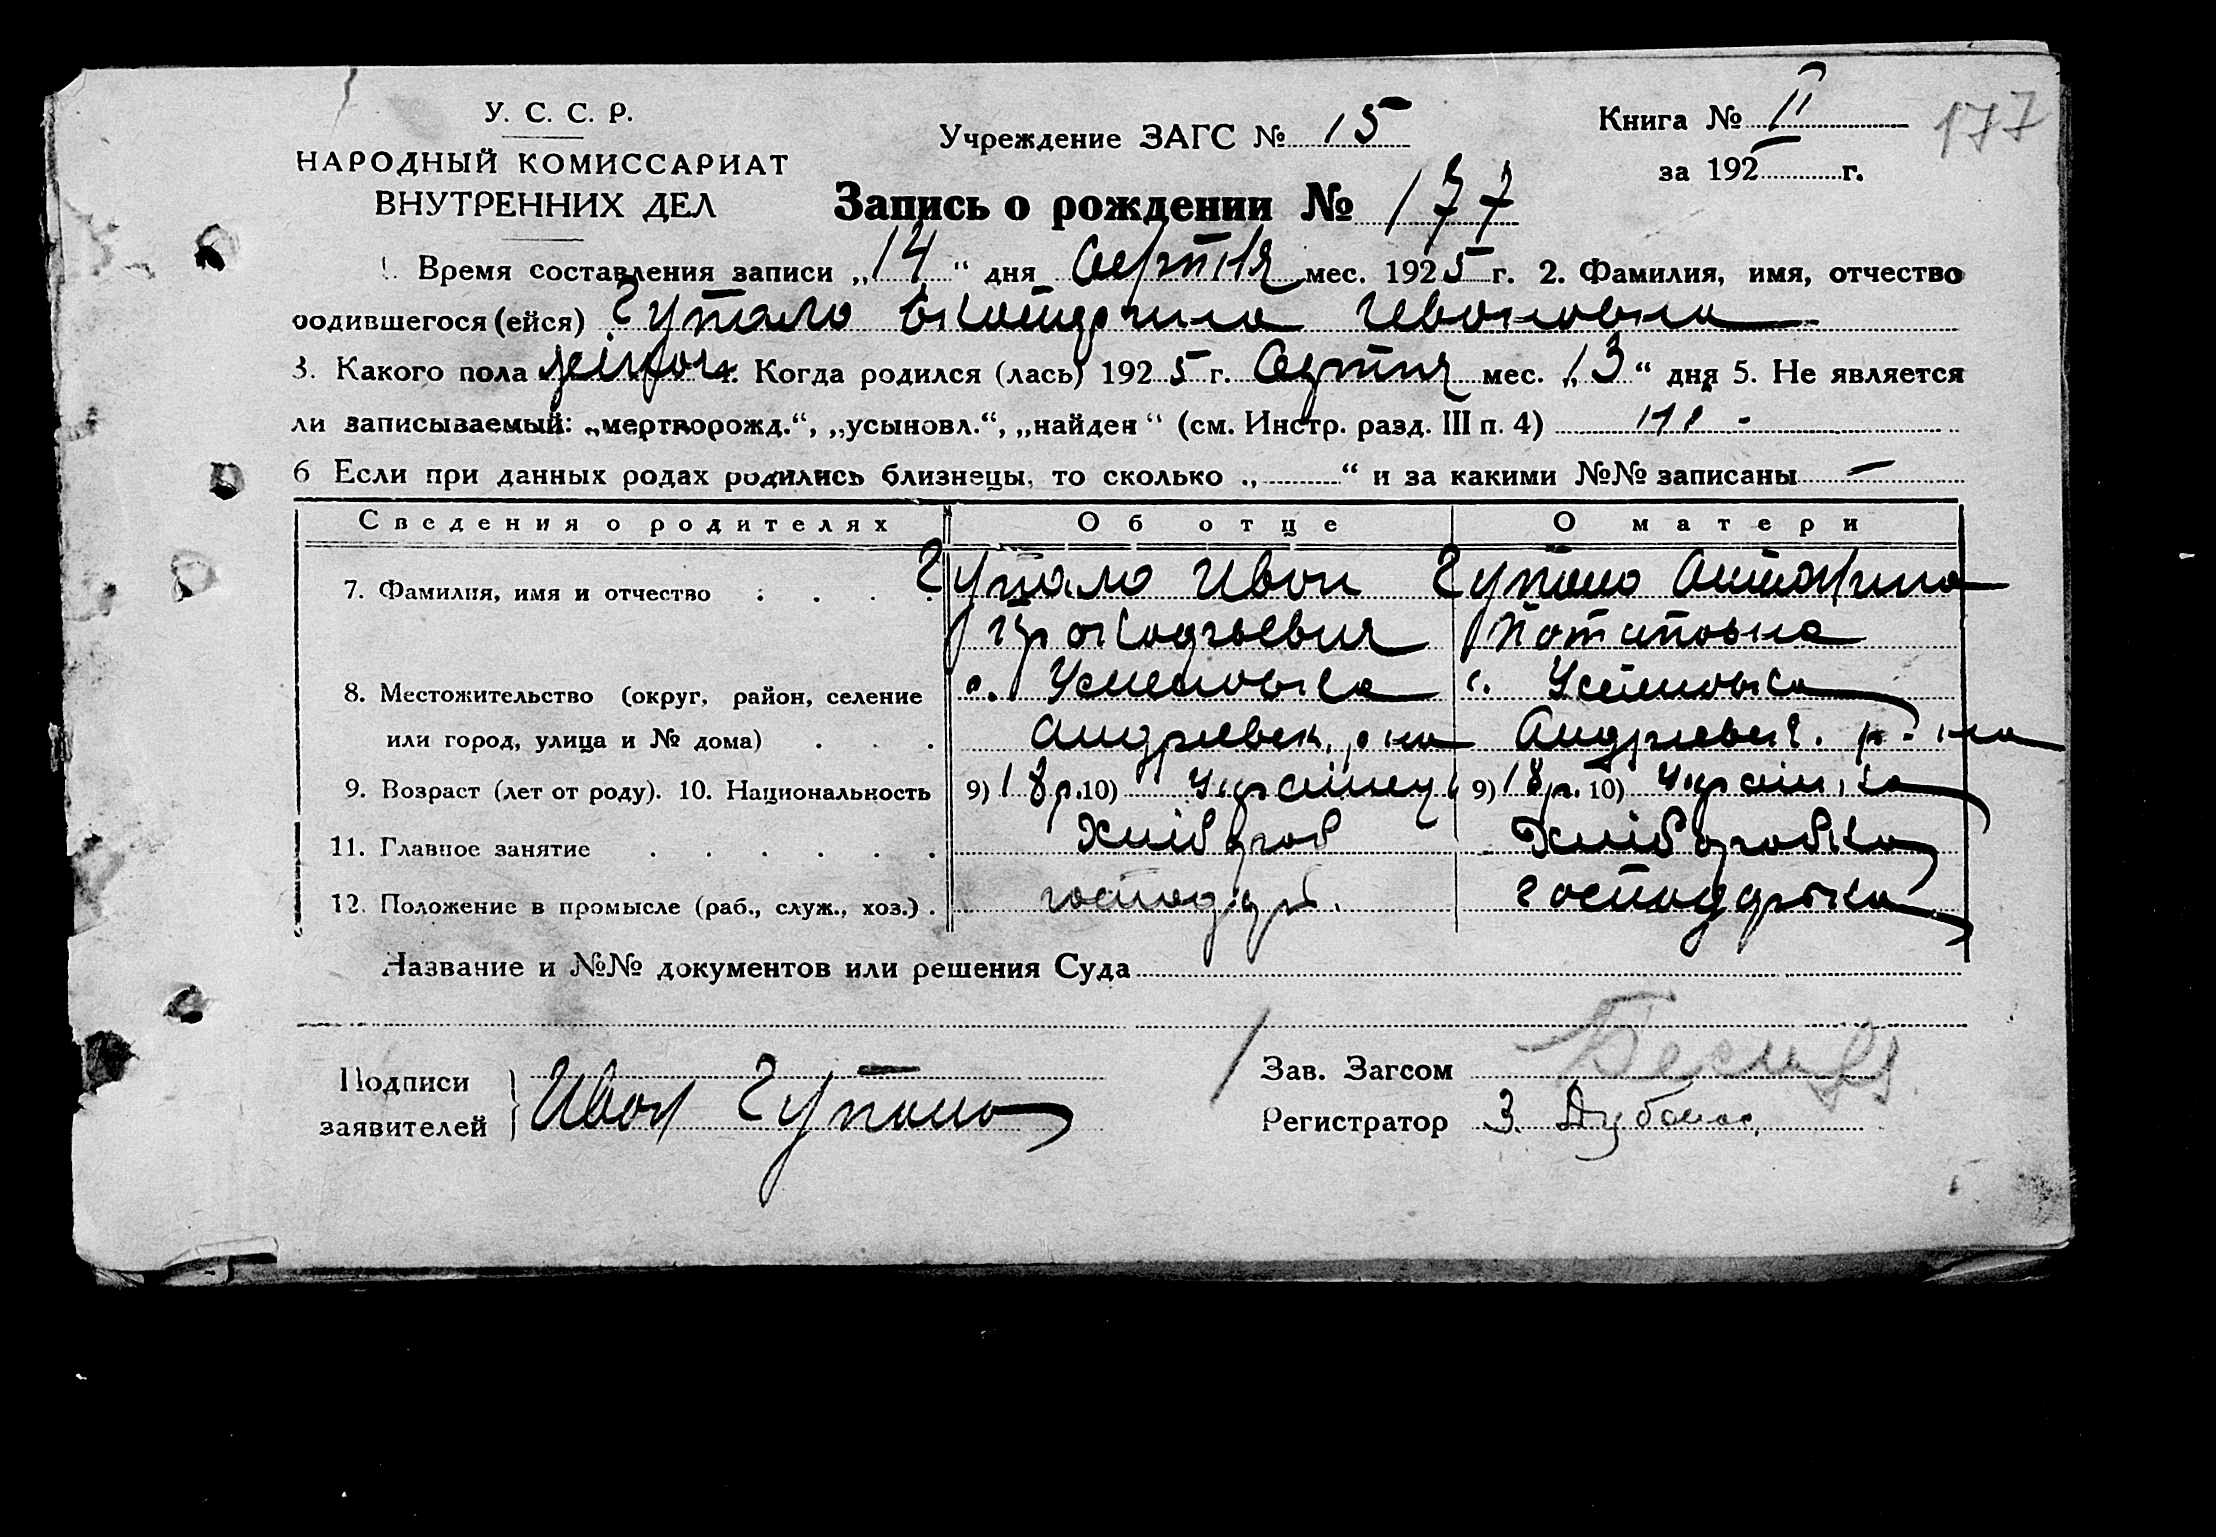 У. С. С. Р.
НАРОДНЫЙ КОМИССАРИАТ
ВНУТРЕННИХ ДЕЛ
Учреждение ЗАГС № 15
Книга № II
177
за 192 г.
Запись о рождении № 177
1. Время составления записи „14“ дня мес. 1925 г. 2. Фамилия, имя, отчество
родившегося (ейся) Гупало Ивановна
3. Какого пола 4. Когда родился (лась) 1925 г. мес. „13“ дня 5. Не является
ли записываемый: „мертворожд.“, „усыновл.“, „найден“ (см. Инстр. разд. III п. 4) ні -
6 Если при данных родах родились близнецы, то сколько „ “ и за какими №№ записаны —
Сведения о родителях Об отце О матери
7. Фамилия, имя и отчество . . . . Гупало Иван Гупало
Потаповна
8. Местожительство (округ, район, селение с. с.
или город, улица и № дома) . . . Андриевск. р-на Андриевск. р-на
9. Возраст (лет от роду). 10. Национальность 9) 18 р. 10) 9) 18 р. 10) Україн.ка
11. Главное занятие . . . . . . Хлібороб Хліборобка
12. Положение в промысле (раб., служ., хоз.) . господар. господарка
Название и №№ документов или решения Суда
Подписи
заявителей Иван Гупало
Зав. Загсом
Регистратор З.